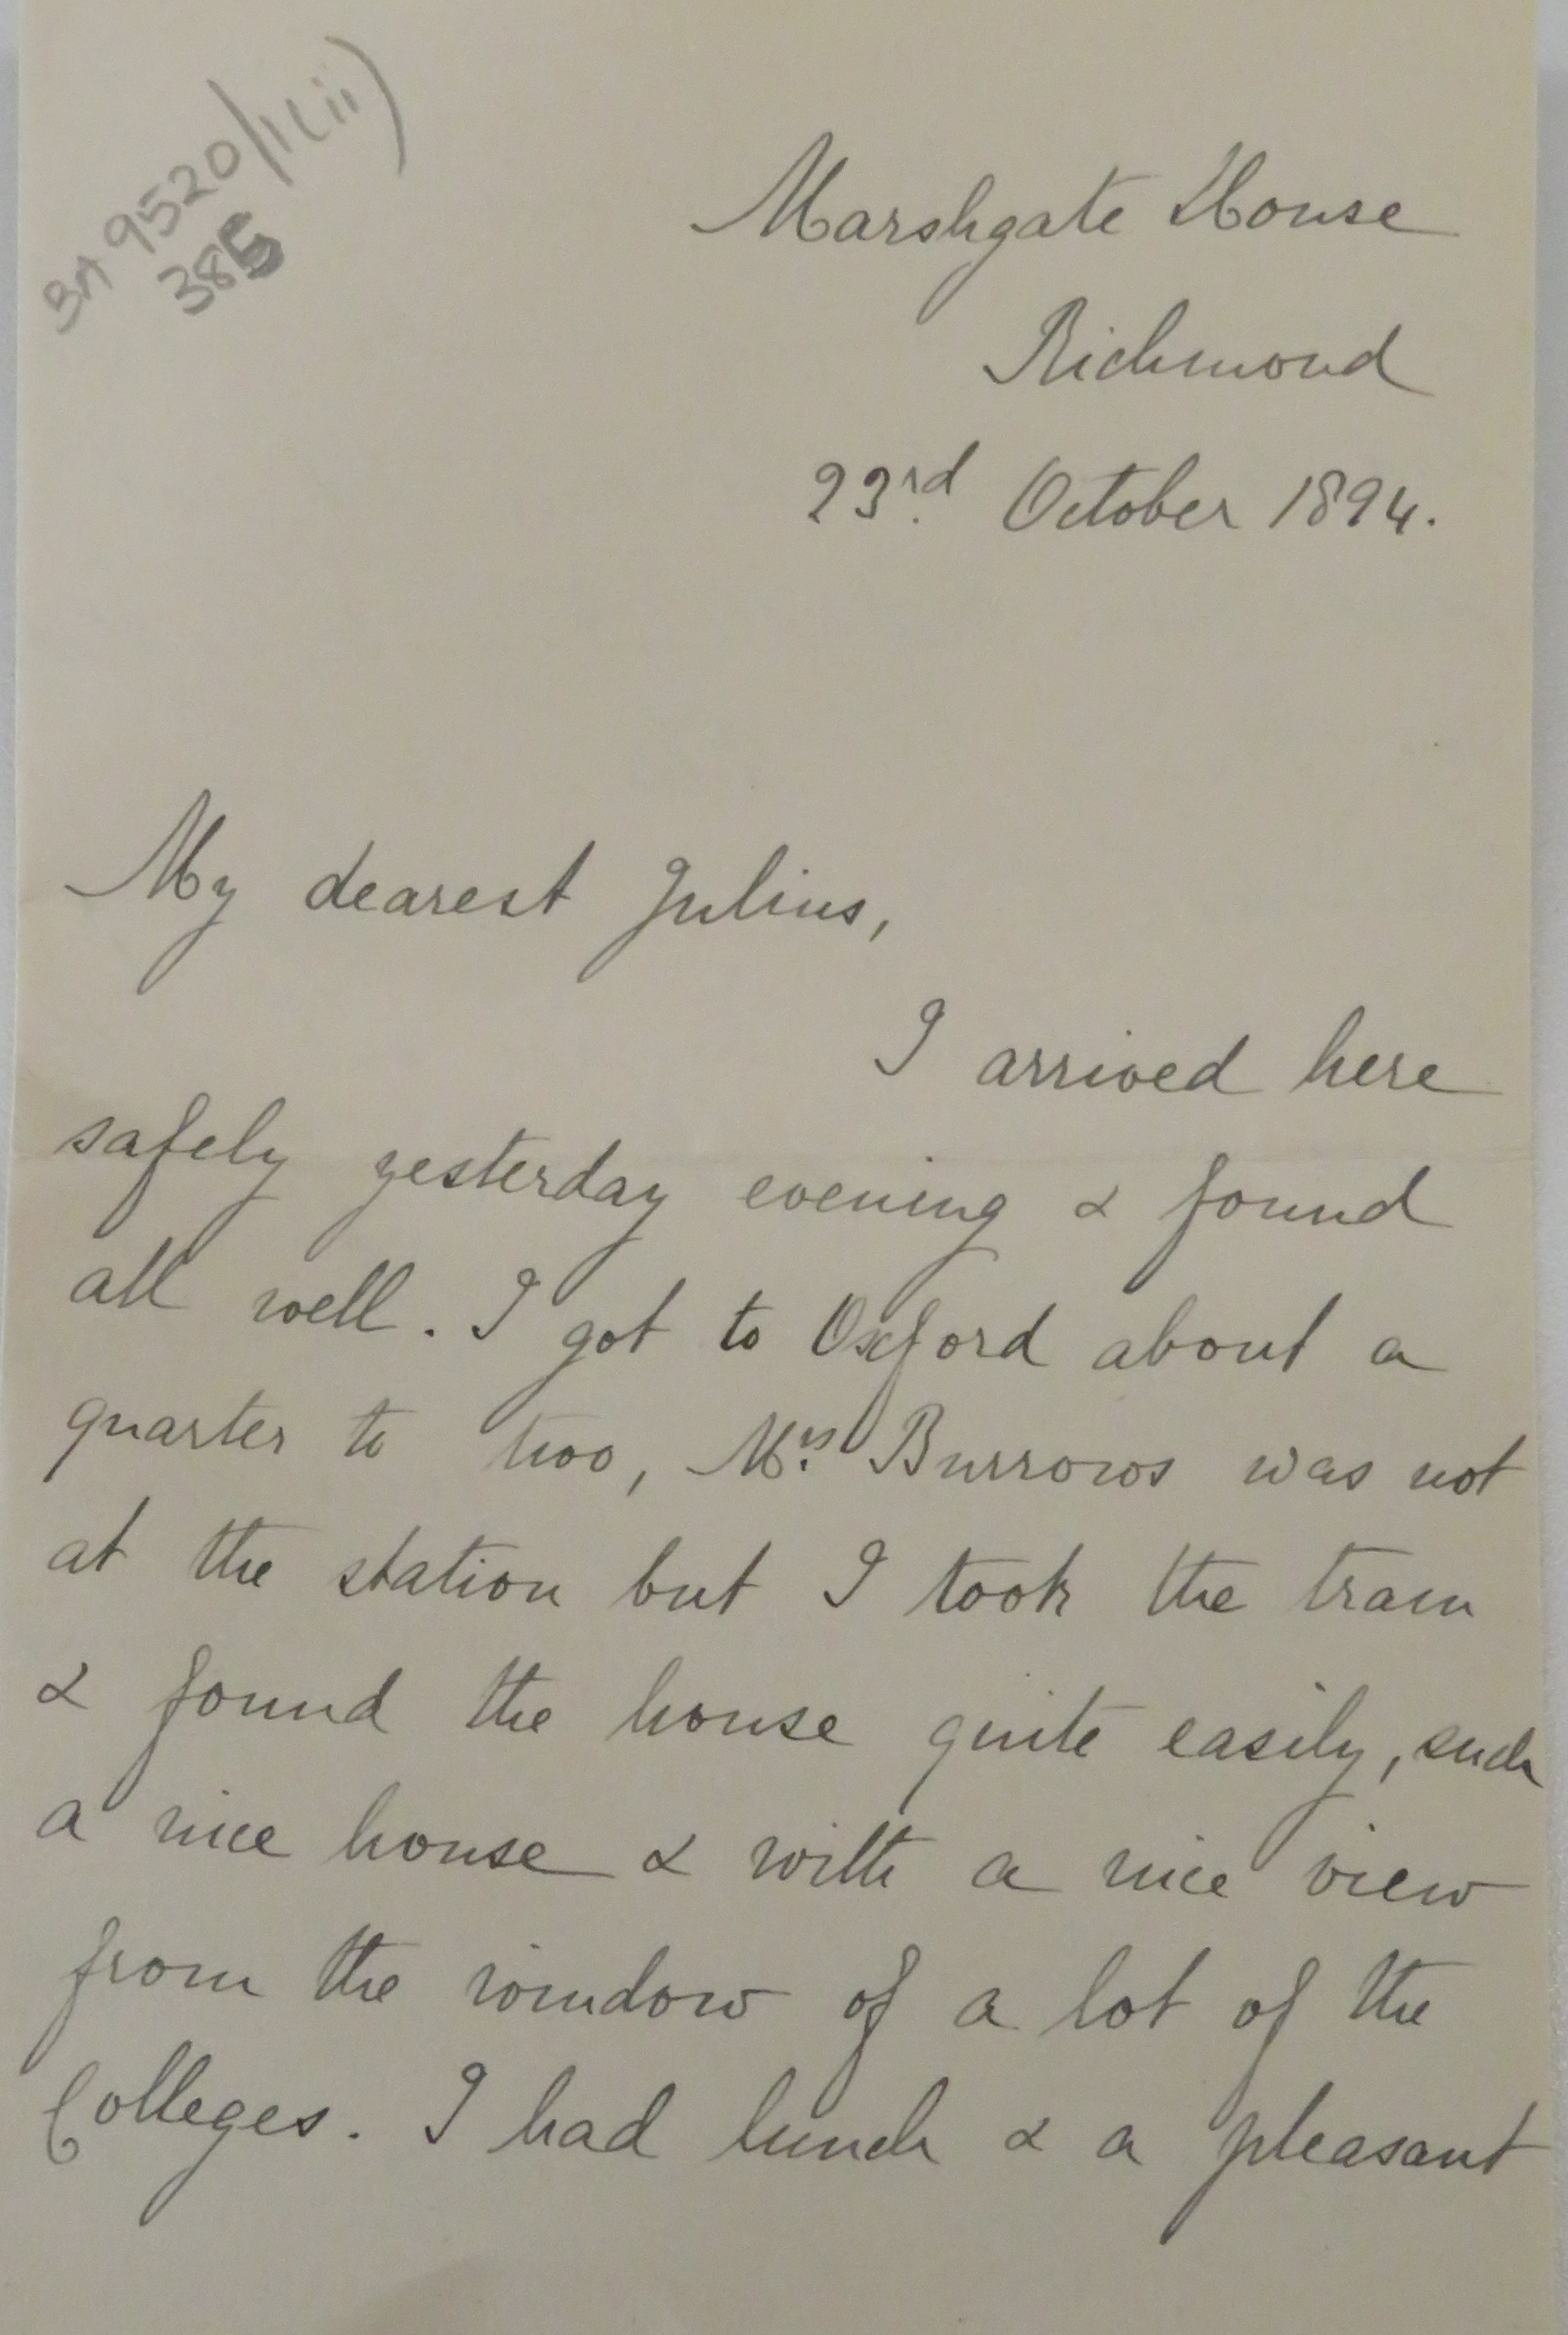 BA 9520/1(ii)
385
Marshgate House
Richmond
23rd October 1894.
My dearest Julius,
I arrived here
safely yesterday evening & found
all well. I got to Oxford about a
quarter to two, Mrs Burrows was not
at the station but I took the tram
& found the house quite easily, such
a nice house & with a nice view
from the window of a lot of the
Colleges. I had lunch & a pleasant